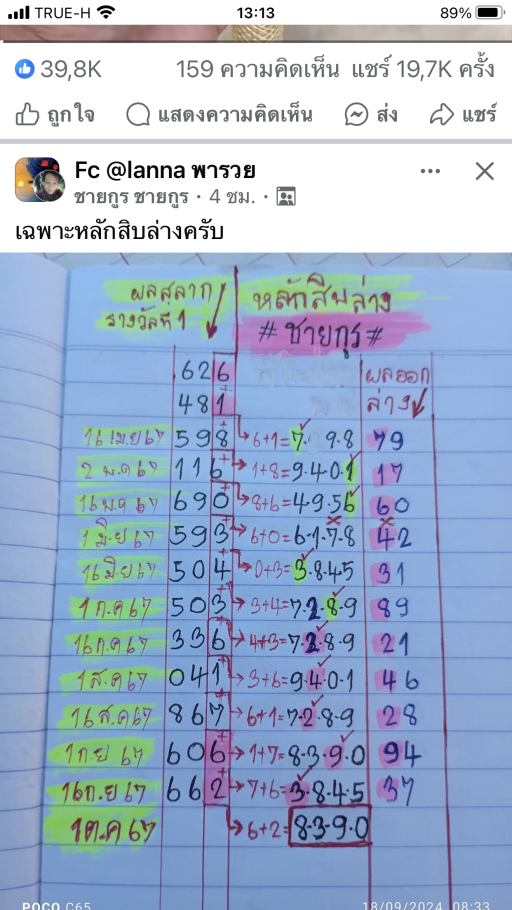 TRUE-H 13:13 89%
39,8K 159 ความคิดเห็น แชร์ 19,7K ครั้ง
ถูกใจ แสดงความคิดเห็น ส่ง แชร์
Fc @lanna พารวย
ชายกูร ชายกูร · 4 ชม. ·
เฉพาะหลักสิบล่างครับ
ผลสลาก หลักสิบล่าง
รางวัลที่ 1 # ชายกูร #
626 ผลออก
481 ล่าง
16 เม.ย 67 598 6+1=7 9.8 79
2 พ.ค 67 116 1+8=9.4.0.1 17
16 พ.ค 67 690 8+6=4.9.5.6 60
1 มิ.ย 67 593 6+0=6.1.7.8 42
16 มิ.ย 67 504 0+3=3.8.4.5 31
1 ก.ค 67 503 3+4=7.2.8.9 89
16 ก.ค 67 336 4+3=7.2.8.9 21
1 ส.ค 67 041 3+6=9.4.0.1 46
16 ส.ค 67 867 6+1=7.2.8.9 28
1 ก.ย 67 606 1+7=8.3.9.0 94
16 ก.ย 67 662 7+6=3.8.4.5 37
1 ต.ค 67 6+2=8.3.9.0
POCO C65 18/09/2024 08:33